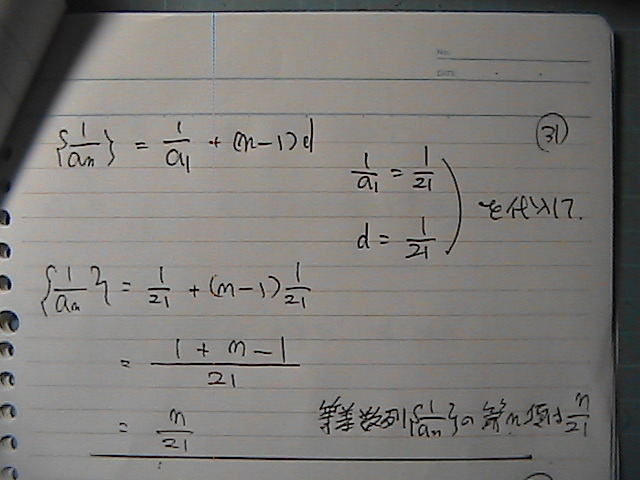 No.
DATE
㉛
{1/an} = 1/a1 + (n-1)d
1/a1 = 1/21
d = 1/21
を代入して.
{1/an} = 1/21 + (n-1) 1/21
= (1 + n - 1)/21
= n/21
等差数列{1/an}の第n項は n/21